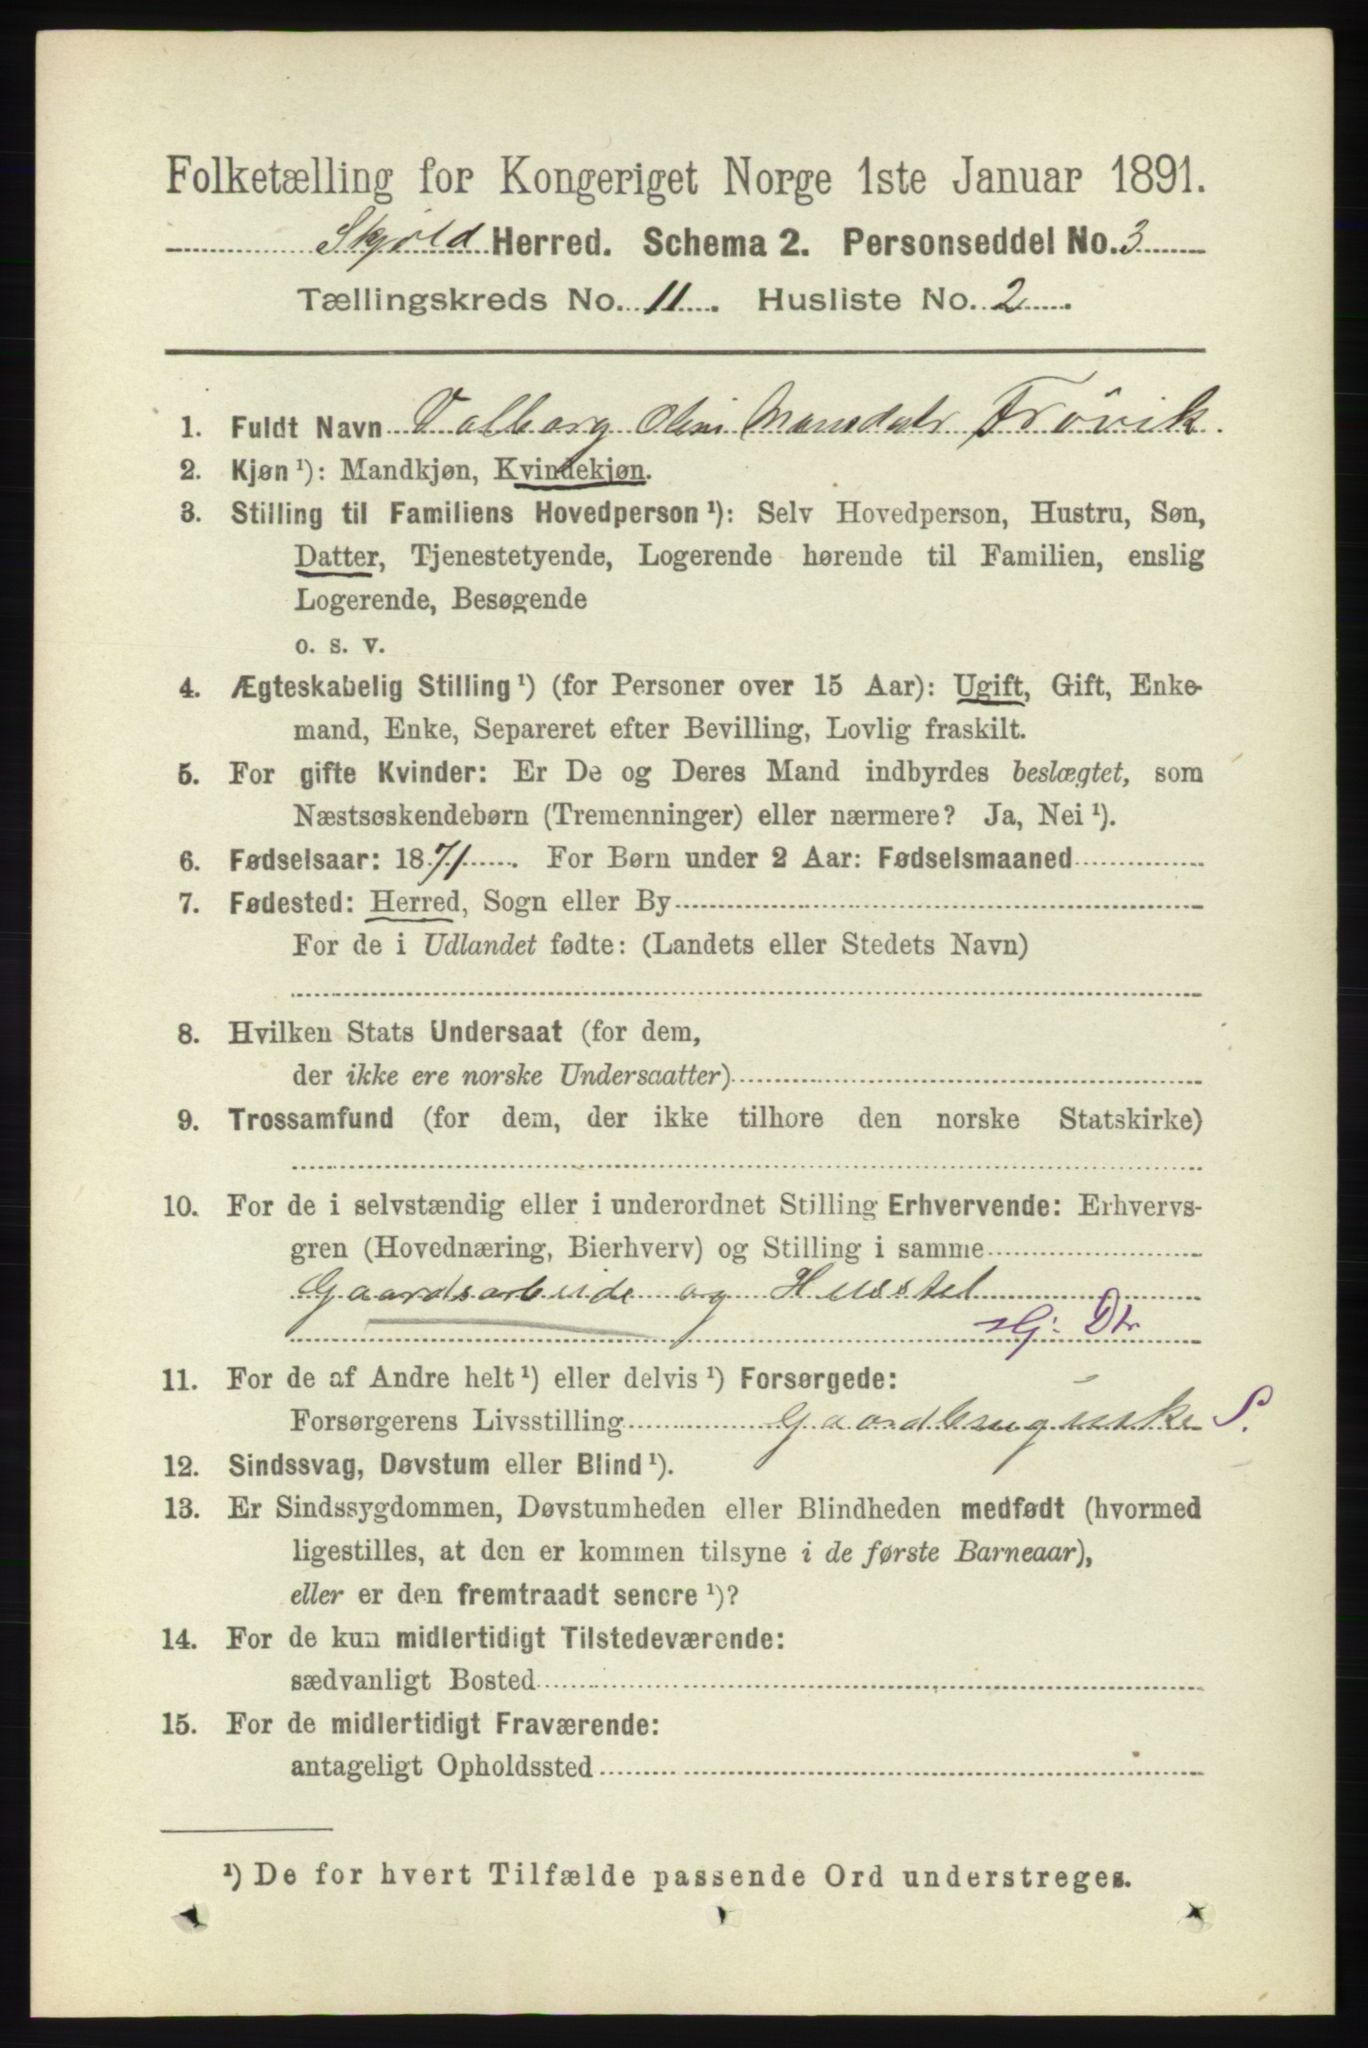 Folketælling for Kongeriget Norge 1ste Januar 1891.
Skjold Herred. Schema 2. Personseddel No. 3
Tællingskreds No. 11. Husliste No. 2.
1. Fuldt Navn Valborg Olini Monsdatr Frövik.
2. Kjøn ¹): Mandkjøn, Kvindekjøn.
3. Stilling til Familiens Hovedperson ¹): Selv Hovedperson, Hustru, Søn,
Datter, Tjenestetyende, Logerende hørende til Familien, enslig
Logerende, Besøgende
o. s. v.
4. Ægteskabelig Stilling ¹) (for Personer over 15 Aar): Ugift, Gift, Enke-
mand, Enke, Separeret efter Bevilling, Lovlig fraskilt.
5. For gifte Kvinder: Er De og Deres Mand indbyrdes beslægtet, som
Næstsøskendebørn (Tremenninger) eller nærmere? Ja, Nei ¹).
6. Fødselsaar: 1871. For Børn under 2 Aar: Fødselsmaaned
7. Fødested: Herred, Sogn eller By
For de i Udlandet fødte: (Landets eller Stedets Navn)
8. Hvilken Stats Undersaat (for dem,
der ikke ere norske Undersaatter)
9. Trossamfund (for dem, der ikke tilhore den norske Statskirke)
10. For de i selvstændig eller i underordnet Stilling Erhvervende: Erhvervs-
gren (Hovednæring, Bierhverv) og Stilling i samme
Gaardsarbeide og Husstel
slj: Dtr
11. For de af Andre helt ¹) eller delvis ¹) Forsørgede:
Forsørgerens Livsstilling S.
12. Sindssvag, Døvstum eller Blind ¹).
13. Er Sindssygdommen, Døvstumheden eller Blindheden medfødt (hvormed
ligestilles, at den er kommen tilsyne i de første Barneaar),
eller er den fremtraadt senere ¹)?
14. For de kun midlertidigt Tilstedeværende:
sædvanligt Bosted
15. For de midlertidigt Fraværende:
antageligt Opholdssted
¹) De for hvert Tilfælde passende Ord understreges.